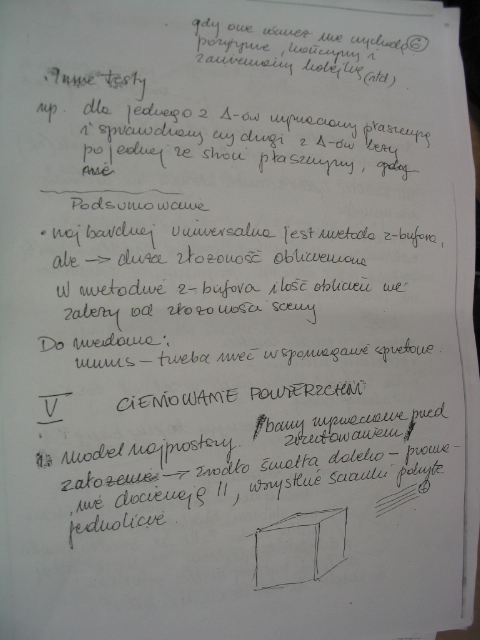 gdy one również nie wychodzą ⑥
pozytywnie, kończymy i
zamieniamy kolejkę (itd)
• Inne testy
np. dla jednego z Δ-ów wyznaczamy płaszczyznę
i sprawdzamy czy drugi z Δ-ów leży
po jednej ze stron płaszczyzny,
nie
Podsumowanie
• najbardziej uniwersalna jest metoda z-bufora,
ale → duża złożoność obliczeniowa
w metodzie z-bufora ilość obliczeń nie
zależy od złożoności sceny
Do
minus – trzeba mieć wspomaganie sprzętowe.
V CIENIOWANIE POWIERZCHNI
model najprostszy. / barwy wyznaczane przed
zrzutowaniem /
założenie → źródło światła daleko – promie-
nie docierają II, wszystkie ścianki pokryte
jednolicie.